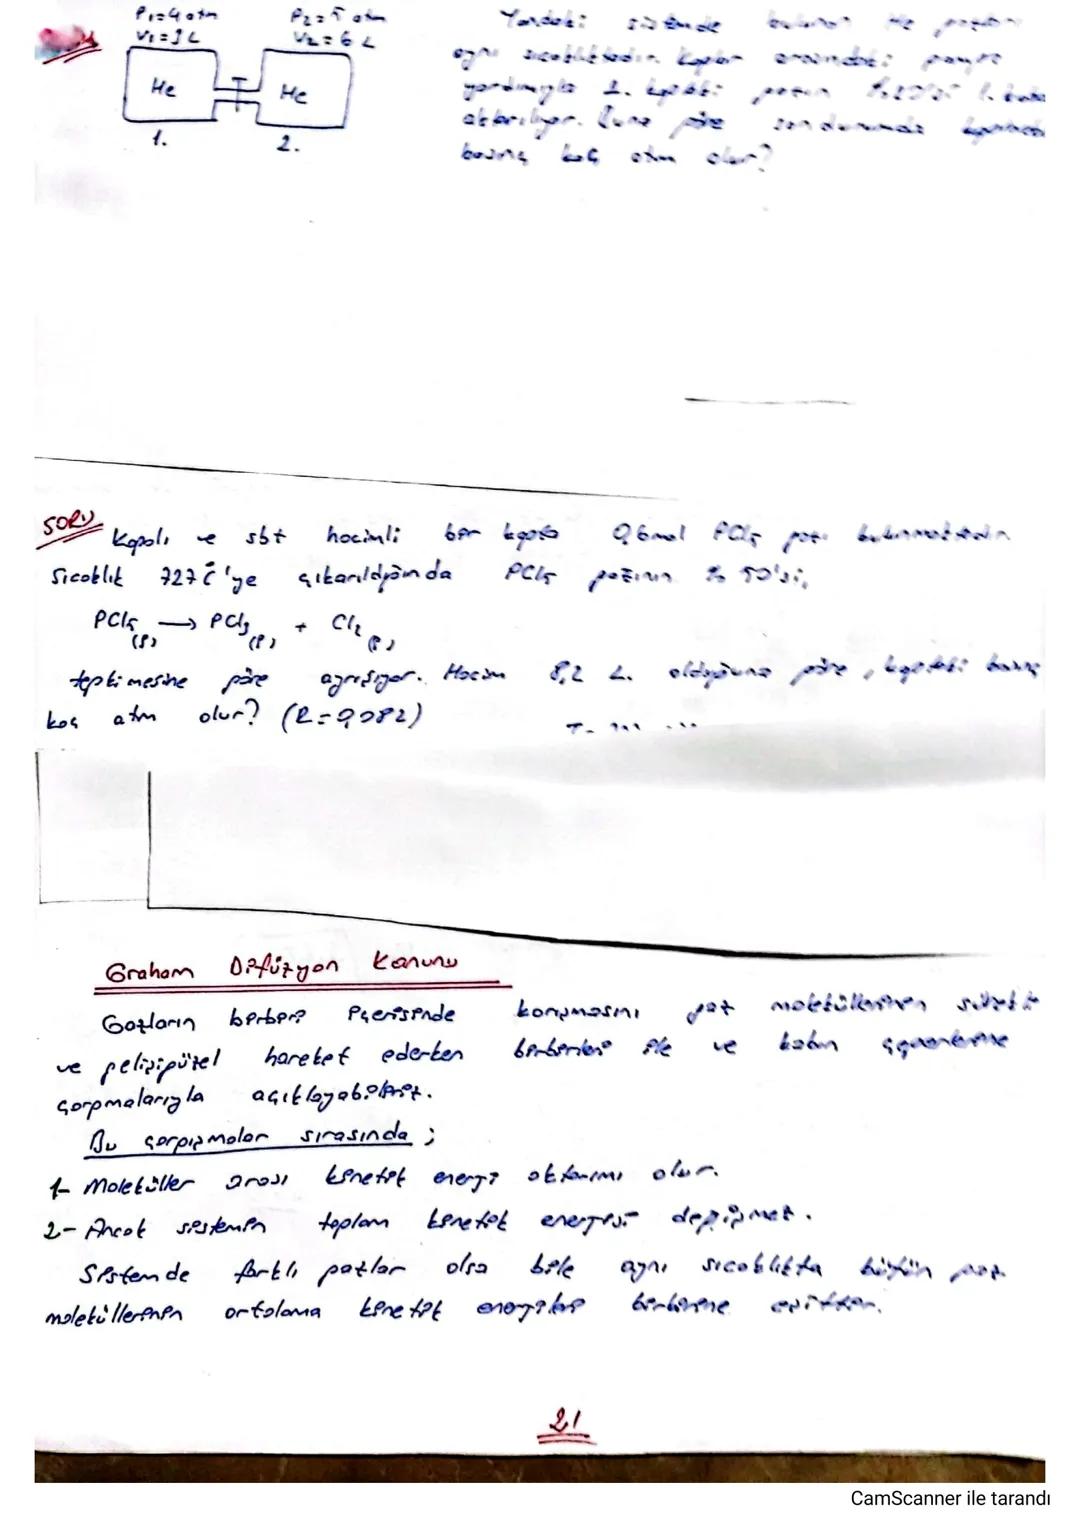 P₁=4 atm
V₁=3 L
P₂=5 atm
V₂=6 L
He
He
1.
2.
Yandaki sistemde bulunan He gazları
aynı sıcaklıktadır. Kaplar arasındaki pompa
yardımıyla 2. kaptaki gazın 1. kaba
aktarılıyor. Buna göre son durumda
basınç kaç atm olur?
SORU
Kapalı ve sbt hacimli bir kapta 0,6 mol PCl₅ gazı bulunmaktadır
Sıcaklık 727 °C'ye çıkarıldığında PCl₅ gazının % 50'si,
PCl₅(g) → PCl₃(g) + Cl₂(g)
tepkimesine göre ayrışıyor. Hacim 8,2 L. olduğuna göre, kaptaki basınç
kaç atm olur? (R=0,082)
Graham Difüzyon Kanunu
Gazların birbiri içerisinde karışmasını gaz moleküllerinin sürekli
ve gelişigüzel hareket ederken birbirleri ile ve kabın çeperlerine
çarpmalarıyla açıklayabiliriz.
Bu çarpışmalar sırasında ;
1- Moleküller arası kinetik enerji aktarımı olur.
2- Ancak sistemin toplam kinetik enerjisi değişmez.
Sistemde farklı gazlar olsa bile aynı sıcaklıkta bütün gaz
moleküllerinin ortalama kinetik enerjileri birbirine eşittir.
21
CamScanner ile tarandı